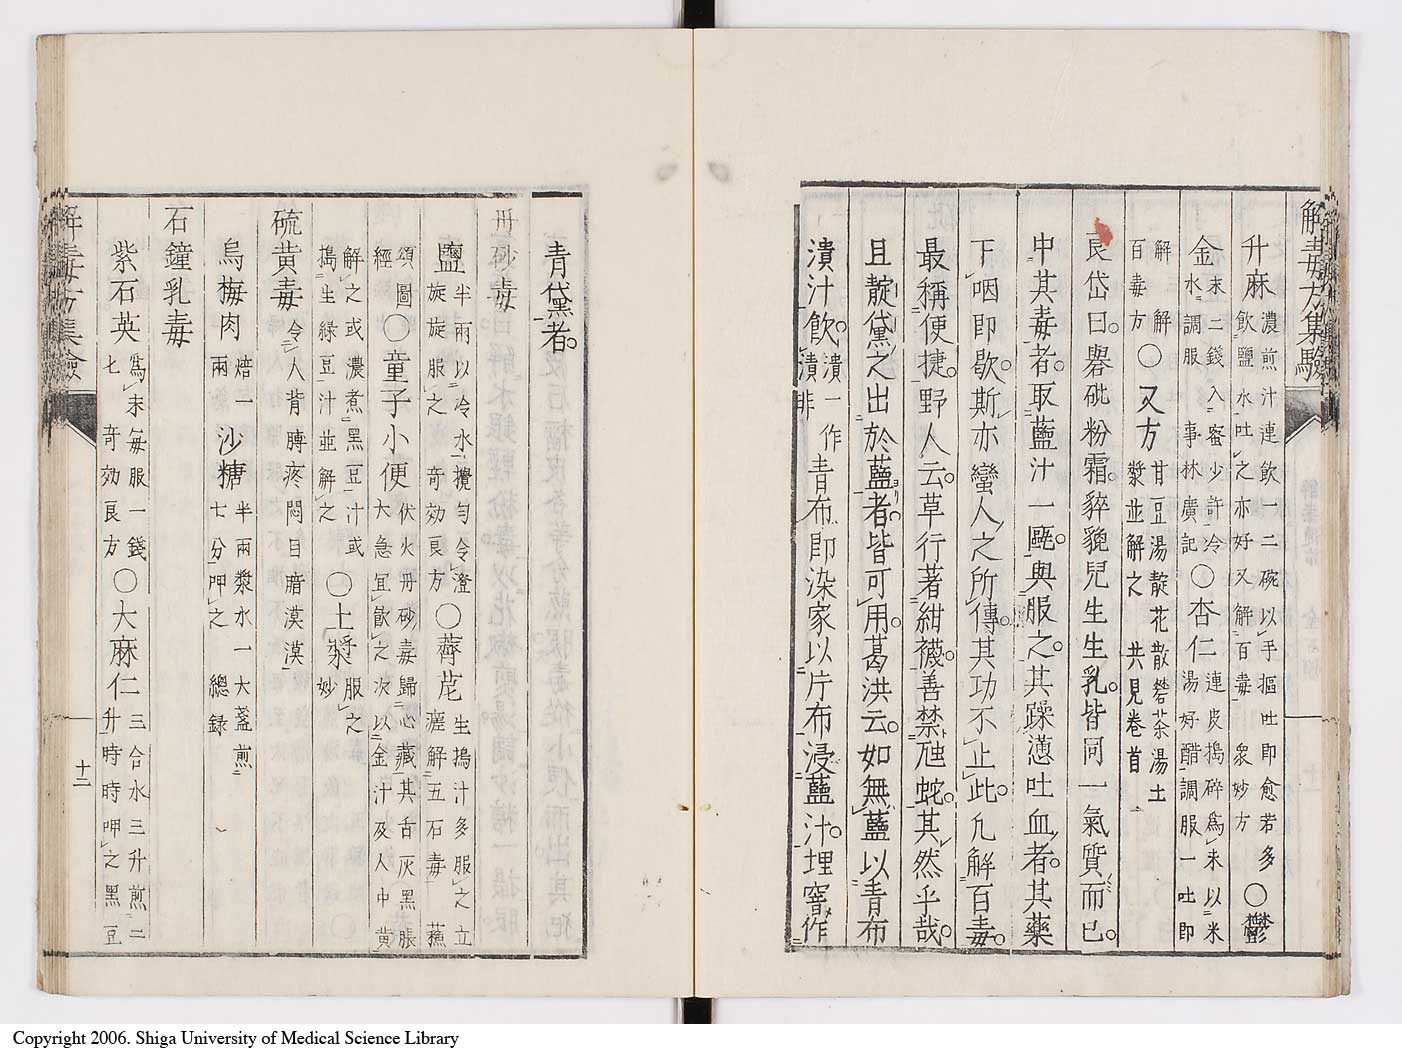 解毒方集驗
升麻 濃煎汁連飲一二碗以手摳吐即愈若多
飲鹽水吐之亦好又解百毒 衆妙方 〇鬱
金 末二錢入蜜少許冷
水調服 事林廣記 〇杏仁 連皮搗碎爲末以米
湯好醋調服一吐即
解 解
百毒方 〇又方 甘豆湯 散花散 礬茶湯 土
漿並解之 共見卷首
艮岱曰礜砒粉霜猝貌兒生生乳皆同一氣質而已
中其毒者取藍汁一甌與服之其躁懣吐血者其藥
下咽即歇斯亦蠻人之所傳其功不止此凡解百毒
最稱便捷野人云草行著紺襪善禁虺蛇其然乎哉
且靛黛之出於藍者皆可用葛洪云如無藍以青布
漬汁飲 漬一作
漬非 青布即染家以片布浸藍汁埋窖作
青黛者
丹砂毒
鹽 半兩以冷水攪勻令澄
旋旋服之 奇効良方 〇薺苨 生搗汁多服之立
瘥解五石毒 蘓
頌圖
經 〇童子小便 伏火丹砂毒歸心藏其舌灰黑脹
大急宜飲之次以金汁及人中黄
解之或濃煮黑豆汁或
搗生綠豆汁並解之 〇土漿 服之
妙
硫黄毒 令人背膊疼悶目暗漠漠
烏梅肉 焙一
兩 沙糖 半兩漿水一大盞煎
七分呷之 總録
石鐘乳毒
紫石英 爲末每服一錢
七 奇効良方 〇大麻仁 三合水三升煎二
升時時呷之 黑豆
解毒方集驗
十二
Copyright 2006. Shiga University of Medical Science Library